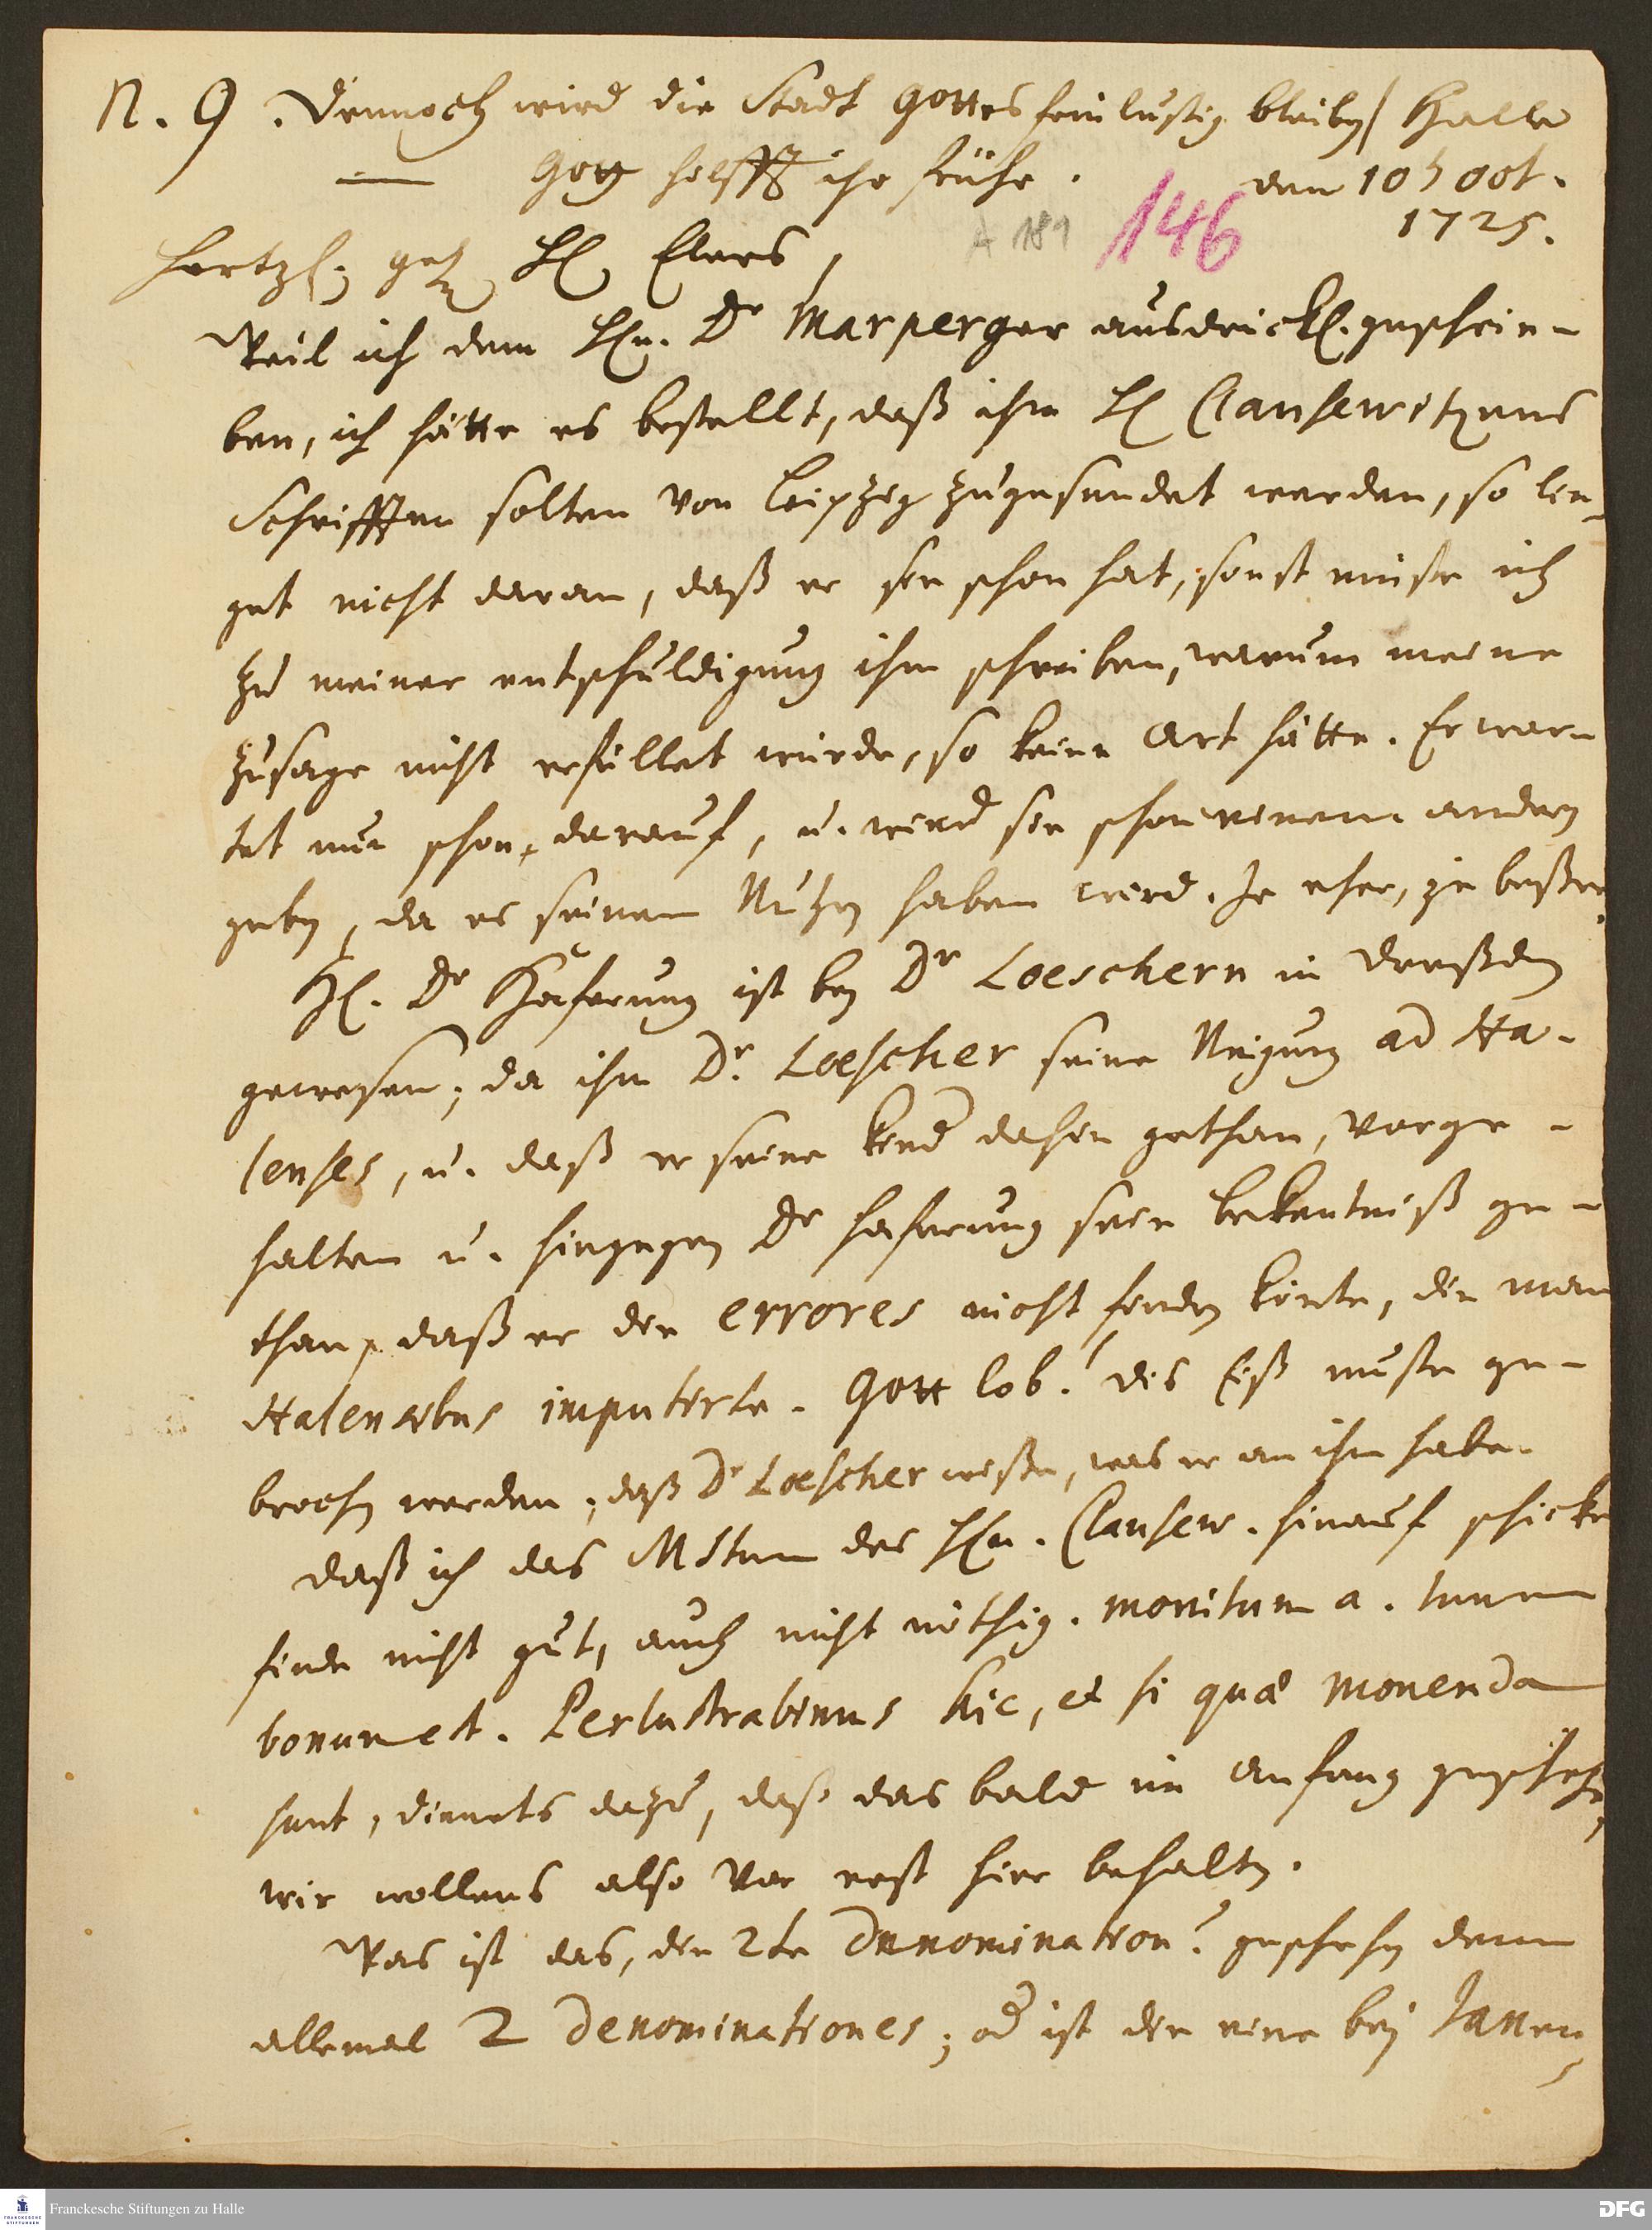 N. 9. Dennoch wird die Stadt Gottes fein lustig bleiben/ Halle
Gott hilfft ihr frühe. den 10 8br.
1725.
A 189 146
Hertzl. gel. H. Elers,
Weil ich dem Hn. Dr Marperger ausdrückl. geschrie-
ben, ich hätte es bestellt, daß ihm H. Clausewitzens
Schrifften solten von Leipzig zugesendet werden, so lie-
get nicht daran, daß er sie schon hat, sonst müste ich
zu meiner entschuldigung ihm schreiben, warum meine
zusage nicht erfüllet würde, so keine Art hätte. Er war-
tet nun schon darauf, u. wird sie schon einem andern
geben, da es seinen Nutzen haben wird. Je eher, je beßer.
H. Dr Haferung ist bey Dr Loeschern in Dreßden
gewesen; da ihm Dr. Loescher seine Neigung ad Ha-
lenses, u. daß er seine Kind dahin gethan, vorge-
halten u. hingegen Dr Haferung sein bekentniß ge-
than, daß er die errores nicht finden könte, die man
Halensibus imputirte. Gott lob! dis Eiß muste ge-
brochen werden; daß Dr Loescher wiße, was er an ihm habe.
daß ich das MStum des Hn. Clausew. hinauf schicke
finde nicht gut, auch nicht nöthig. monitum a.
bonum est. Perlustrabimus hic, et si quae monenda
sunt, dienets dazu, daß das bald im Anfang geschehe,
wir wollens also vor erst hier behalten.
Was ist das, die 2te Denomination? geschehen denn
allemal 2 Denominationes; od ist die eine bey